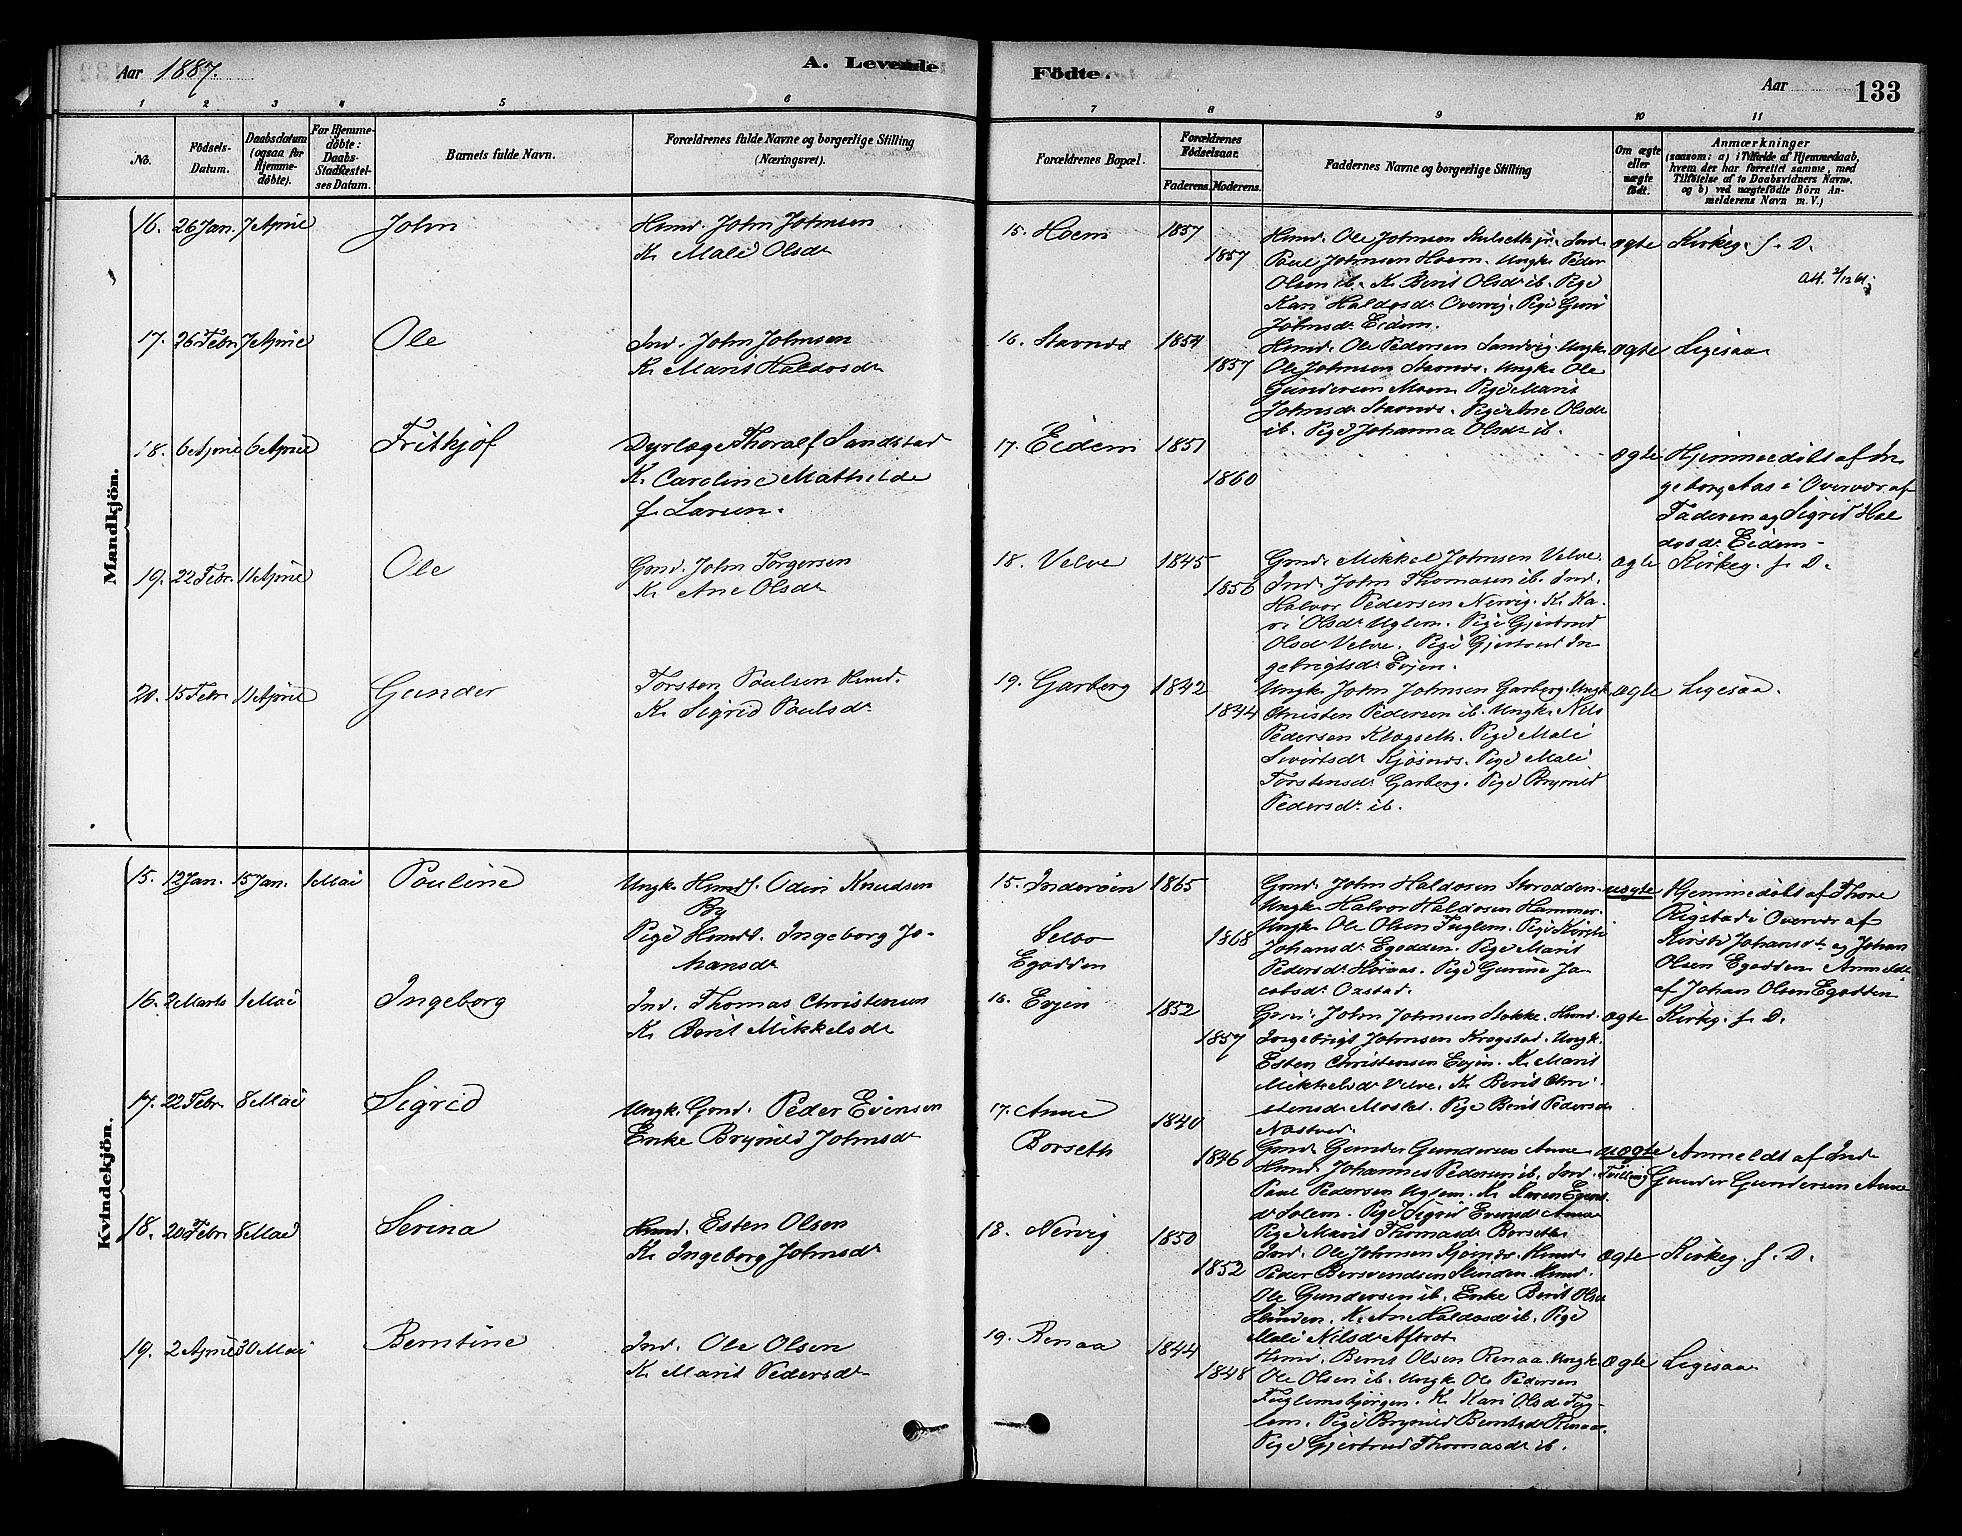 Aar 1887.
A. Levende
Födte.
Aar
133
1 2 3 4 5 6 7 8 9 10 11
No.
Födsels-
Datum.
Daabsdatum
(ogsaa for
Hjemme-
døbte).
For Hjemme-
døbte:
Daabs-
Stadfæstel-
ses Datum.
Barnets fulde Navn.
Forældrenes fulde Navne og borgerlige Stilling
(Næringsvei).
Forældrenes Bopæl.
Forældrenes
Födselsaar.
Faderens.
Moderens.
Faddernes Navne og borgerlige Stilling
Om ægte
eller
uægte
födt.
Anmærkninger
(saasom: a) i Tilfælde af Hjemmedaab,
hvem der har forrettet samme, med
Tilföielse af to Daabsvidners Navne.
og b) ved uægtefödte Börn An-
melderens Navn m. V.)
Mandkjön.
16. 26 Jan. 7 April
John
Hmd. John Johnsen
K. Mali Olsdr
15. Hoem
1857
1857
Hmd. Ole Johnsen Kulseth jr. Ind.
Paul Johnsen Hoem. Ungk. Peder
Olsen ib. K. Berit Olsdr ib. Pige
Kari Haldosdr Overvig. Pige Guri
Johnsdr Eidem.
ægte
Kirkeg. f. D.
att. 2/12 61
17. 26 Febr 7 April
Ole
Ind. John Johnsen
K. Marit Haldosdr
16. Stavnæs
1854
1857
Hmd. Ole Pedersen Sandvig. Ungk.
Ole Johnsen Stavnæs. Ungk. Ole
Gundersen Moen. Pige Marit
Johnsdr Stavnæs. Pige Ane Olsdr
ib. Pige Johanna Olsdr ib.
ægte
Ligesaa
18. 6 April 6 April
Frithjof
Dyrlæge Thoralf Sandstad
K. Caroline Mathilde
f. Larsen.
17. Eidem
1851
1860
ægte
Hjemmedöbt af In
geborg Aas i Overvær af
Faderen og Sigrid Hal
dosdr Eidem.
19. 22 Febr. 11 April
Ole
Gmd. John Torgersen
K. Ane Olsdr
18. Velve
1845
1856
Gmd. Mikkel Johnsen Velve.
Ind. John Thomasen ib. Ind.
Halvor Pedersen Nervig. K. Ka-
ri Olsdr Uglem. Pige Gjertrud
Olsdr Velve. Pige Gjertrud In
gebrigtsdr Evjen.
ægte
Kirkeg. f. D.
20. 15 Febr. 11 April
Gunder
Torsten Paulsen Hmd.
K. Sigrid Paulsdr
19. Garberg
1842
1844
Ungk. John Johnsen Garberg. Ungk
Christen Pedersen ib. Ungk. Nils
Pedersen Klægseth. Pige Mali
Sivertsdr Kjösnæs. Pige Mali
Torstensdr Garberg. Pige Brynild
Pedersdr ib.
ægte
Ligesaa.
Kvindekjön.
15. 12 Jan. 15 Jan. 1 Mai
Pauline
Ungk. Hmdf. Odin Knudsen
By
Pige Hmdt. Ingeborg Jo-
hansdr
15. Inderöen
Selbo
Egodden
1865
1868
Gmd. John Haldosen Storodden.
Ungk. Halvor Haldosen Hammer.
Ungk. Ole Olsen Fuglem. Pige Kirsti
Johansdr Egodden. Pige Marit
Pedersdr Höivaas. Pige Gurine Ja-
cobsdr Oxstad.
uægte
Hjemmedöbt af Thore
Rigstad i Overvær af
Kirsti Johansdr og Johan
Olsen Egodden Anmeldt
af Johan Olsen Egodden
16. 2 Marts 1 Mai
Ingeborg
Ind. Thomas Christensen
K. Berit Mikkelsdr
16. Evjen
1852
1857
Gmd. John Johnsen Stokke. Hmd.
Ingebrigt Johnsen Krogstad. Ungk.
Esten Christensen Evjen. K. Marit
Mikkelsdr Velve. K. Berit Chri-
stensdr Moslet. Pige Berit Pedersdr
Næstved.
ægte
Kirkeg. f. D.
17. 22 Febr. 8 Mai
Sigrid
Ungk. Gmd. Peder Evensen
Enke Brynild Johnsdr
17. Aune
Borseth
1840
1846
Gmd. Gunder Gundersen Aune.
Hmd. Johannes Pedersen ib. Ind.
Paul Pedersen Uglem. K. Karen Evens
dr Solem. Pige Sigrid Evensdr Aune
Pige Marit Thomasdr Borseth.
uægte
Tvilling
Anmeldt af Ind
Gunder Gundersen Aune
18. 20 Febr 8 Mai
Serina
Hmd. Esten Olsen
K. Ingeborg Johnsdr
18. Nervig
1850
1852
Ind. Ole Johnsen Kjösnæs. Hmd.
Peder Bersvendsen Slinden. Hmd.
Ole Gundersen ib. Enke Berit Olsd
Slinden. K. Ane Haldosdr ib. Pige
Mali Nilsdr Aftret
ægte
Kirkeg. f. D.
19. 2 April 30 Mai
Berntine
Ind. Ole Olsen
K. Marit Pedersdr
19. Renaa
1844
1848
Hmd. Bernt Olsen Renaa. Ungk.
Ole Olsen ib. Ungk Ole Pedersen
Fuglemsbjörgen. K. Kari Olsdr Fug-
lem. Pige Brynild Berntsdr Renaa.
Pige Gjertrud Thomasdr ib.
ægte
Ligesaa